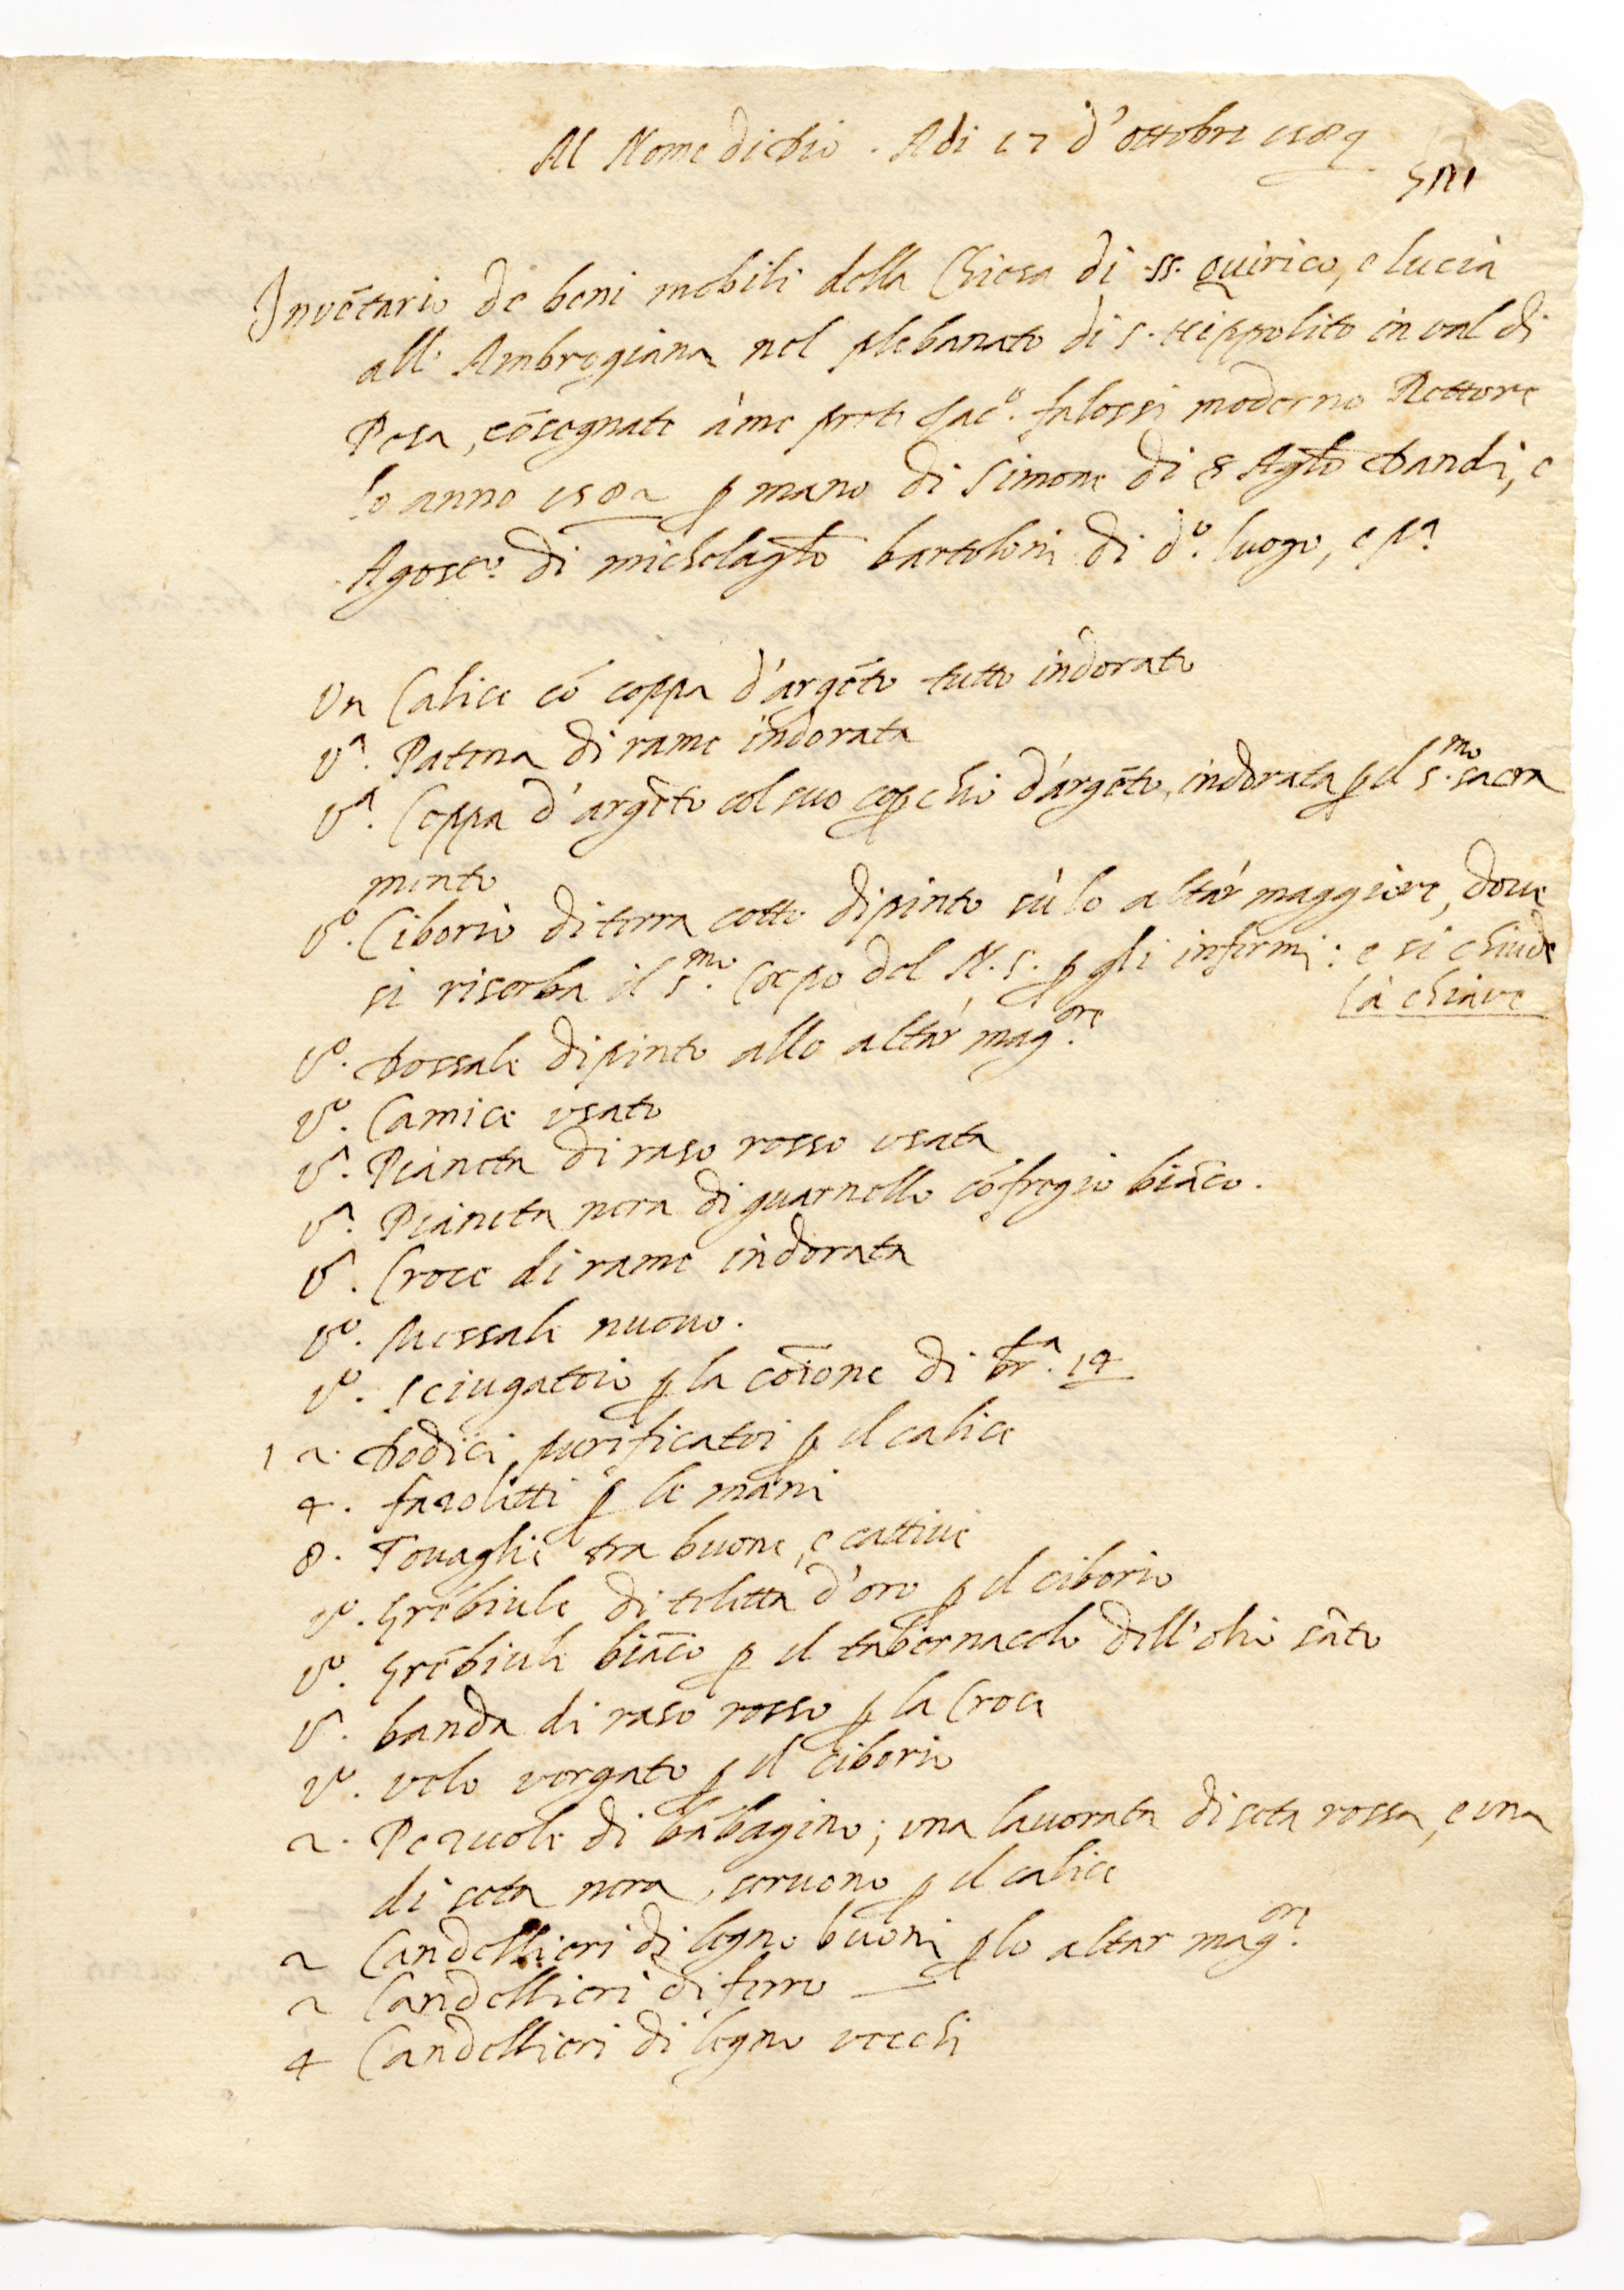 Al Nome di Dio. Adi 17 d'ottobre 1584
Invētario de beni mobili della Chiesa di .ss. Quirico, e Lucia
all' Ambrogiana nel plebanato di S. Hippolito in val di
Pesa, cōsegnate à me prete Jac.º falossi moderno Rettore
lo anno 1582 p mano di Simone di Agl̃o Dandi, e
Agost.º di michelagl̃o bartoloni di d.º luogo, e p.ª
Un Calice cō coppa d'argēto tutto indorato
V.ª Patena di rame indorata
V.ª Coppa d'argēto col suo copchio d'argēto, indorata p il s.mo sacra
mento
V.º Ciborio di terra cotta dipinto sù lo altar maggiore, dove
si riserba il s.mo Corpo del N.S. p gli infirmi: e si chiude
à chiave
V.º Dossale dipinto allo altar mag.ore
V.º Camice usato
V.ª Pianeta di raso rosso usata
V.ª Pianeta nera di guarnello cō fregio biāco.
V.ª Croce di rame indorata
V.º Messale nuovo.
V.º Sciugatoio p la cōione di br.ª 14
12. Dodici purificatoi p il calice
4. fazoletti p le mani
8. Tovaglie tra buone, e cattive
V.º Grēbiule di teletta d'oro p il ciborio
V.º Grēbiule biāco p il tabernacolo dell'olio sāto
V.ª banda di raso rosso p la Croce
V.º velo vergato p il ciborio
2. Pezuole di bābagino; una lavorata di seta rossa, e una
di seta nera, servono p il calice
2 Candellieri di legno buoni p lo altar mag.ore
2 Candellieri di ferro
4 Candellieri di legno vecchi